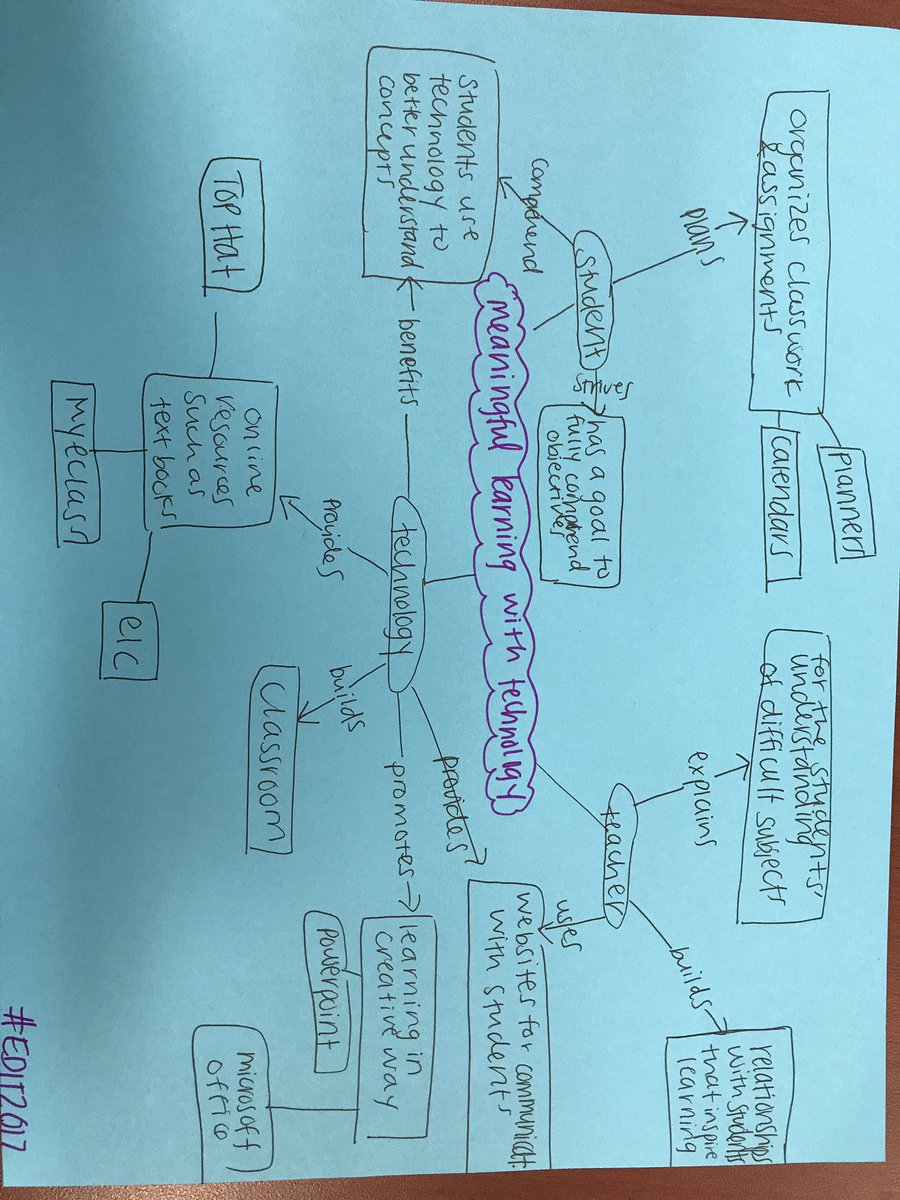 planners
calendars
organizes classwork
& assignments
plans
student
comprend
students use
technology to
better understand
concepts
strives
has a goal to
fully comprend
objectives
for the students'
understanding
of difficult subjects
explains
teacher
builds
relationships
with students
that inspire
learning
uses
websites for communicat
with students
meaningful learning with technology
benefits
technology
provides
provides
builds
promotes
online
resources
such as
textbooks
Top Hat
Myeclass
elc
classroom
learning in
creative way
powerpoint
microsoft
office
#EDIT2017